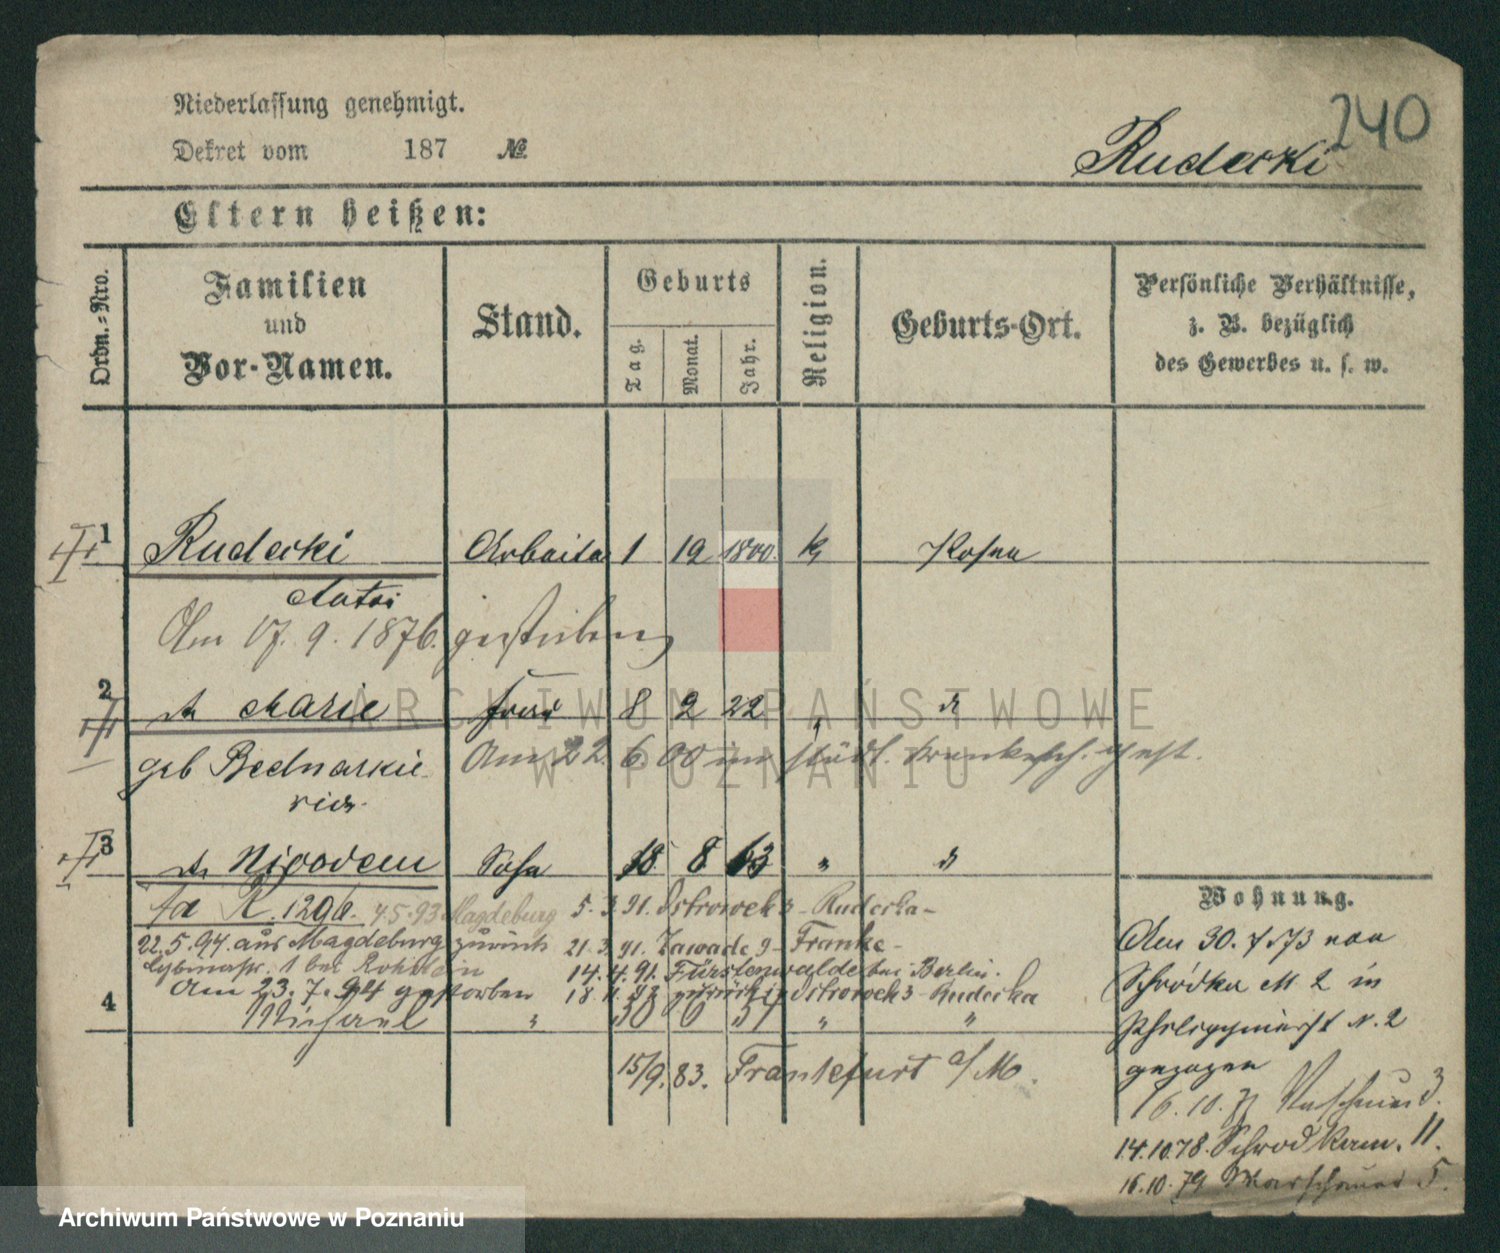 240
Niederlassung genehmigt.
Dekret vom 187 №
Rudecki
Eltern heißen:
Ordn.-Nro.
Familien und Vor-Namen.
Stand.
Geburts
Tag.
Monat.
Jahr.
Religion.
Geburts-Ort.
Persönliche Verhältnisse,
z. B. bezüglich
des Gewerbes u. s. w.
1 Rudecki Arbeiter 1 1800. k Posen
Am 17. 9. 1876. gestorben
2 Marie Frau 8 2 22 "
geb Bednarkie
vicz
Am 22. 6. 00 im städt. gest.
3 Nicodem Sohn 18 8 63 "
R. 1296. 4.5.93 Magdeburg 5. 3. 91. Ostrowek 3 - Rudecka -
22.5.94. aus Magdeburg zurück 21. 3. 91. Zawade 9 - Franke -
1 bei 14. 4. 91. Fürstenwalde bei Berlin.
Am 23. 7. 94 gestorben 18. 11. zurück Ostrowek 3 - Rudecka
4 Michael " 30 " "
15/9. 83. Frankfurt a/M.
Wohnung.
Am 30. 73 von
Schrödka 2 in
N. 2
gezogen
16. 10. 3.
14.10.78. Schrodkam. 11.
16.10.79 Warschauer 5.
ARCHIWUM PAŃSTWOWE
W POZNANIU
Archiwum Państwowe w Poznaniu